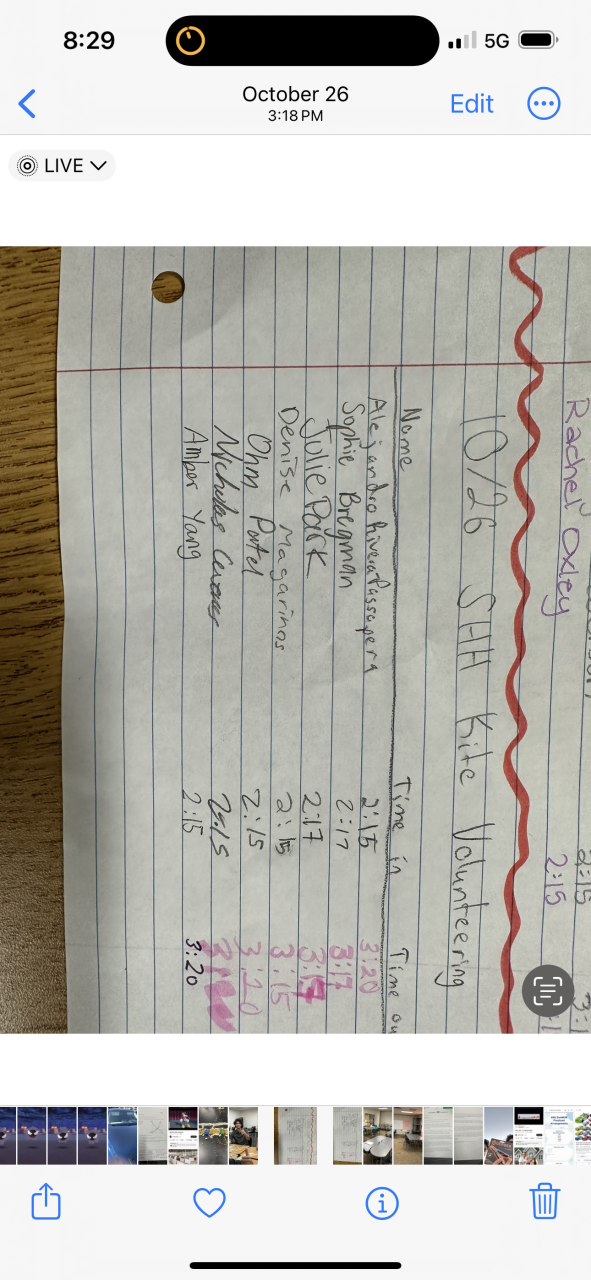 8:29
5G
October 26
3:18 PM
Edit
LIVE
Rachel Oxley 2:15
10/26 SHH Kite Volunteering
Name Time in Time ou
Alejandro Rivera Passapera 2:15 3:20
Sophie Bregman 2:17 3:17
Julie Park 2:17 3:17
Denise Magarinos 2:15 3:15
Ohm Patel 2:15 3:20
Nicholas 2:15
Amber Yang 2:15 3:20